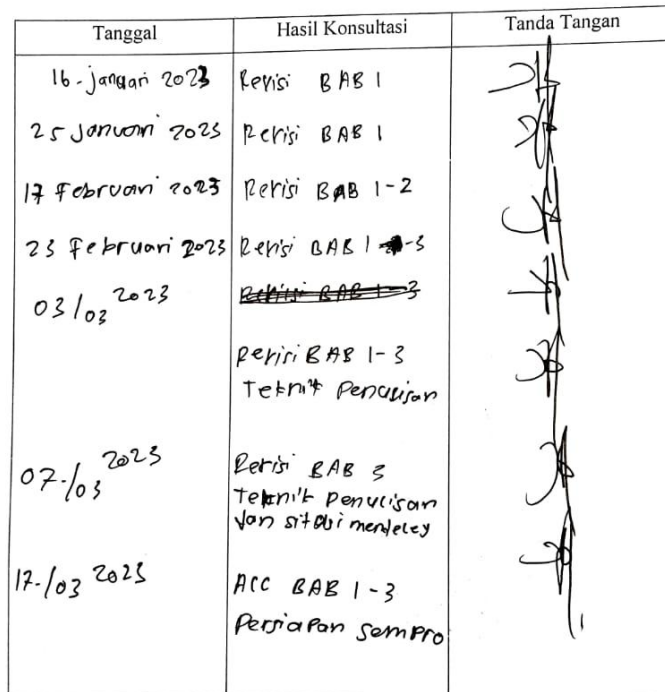 Tanggal Hasil Konsultasi Tanda Tangan
16-januari 2023 Revisi BAB 1
25 Januari 2023 Revisi BAB 1
17 Februari 2023 Revisi BAB 1-2
23 Februari 2023 Revisi BAB 1-3
03/03 2023 Revisi BAB 1-3
Revisi BAB 1-3
Teknik Penulisan
07-/03 2023 Revisi BAB 3
Teknik Penulisan
dan sitasi mendeley
17-/03 2023 ACC BAB 1-3
Persiapan sempro